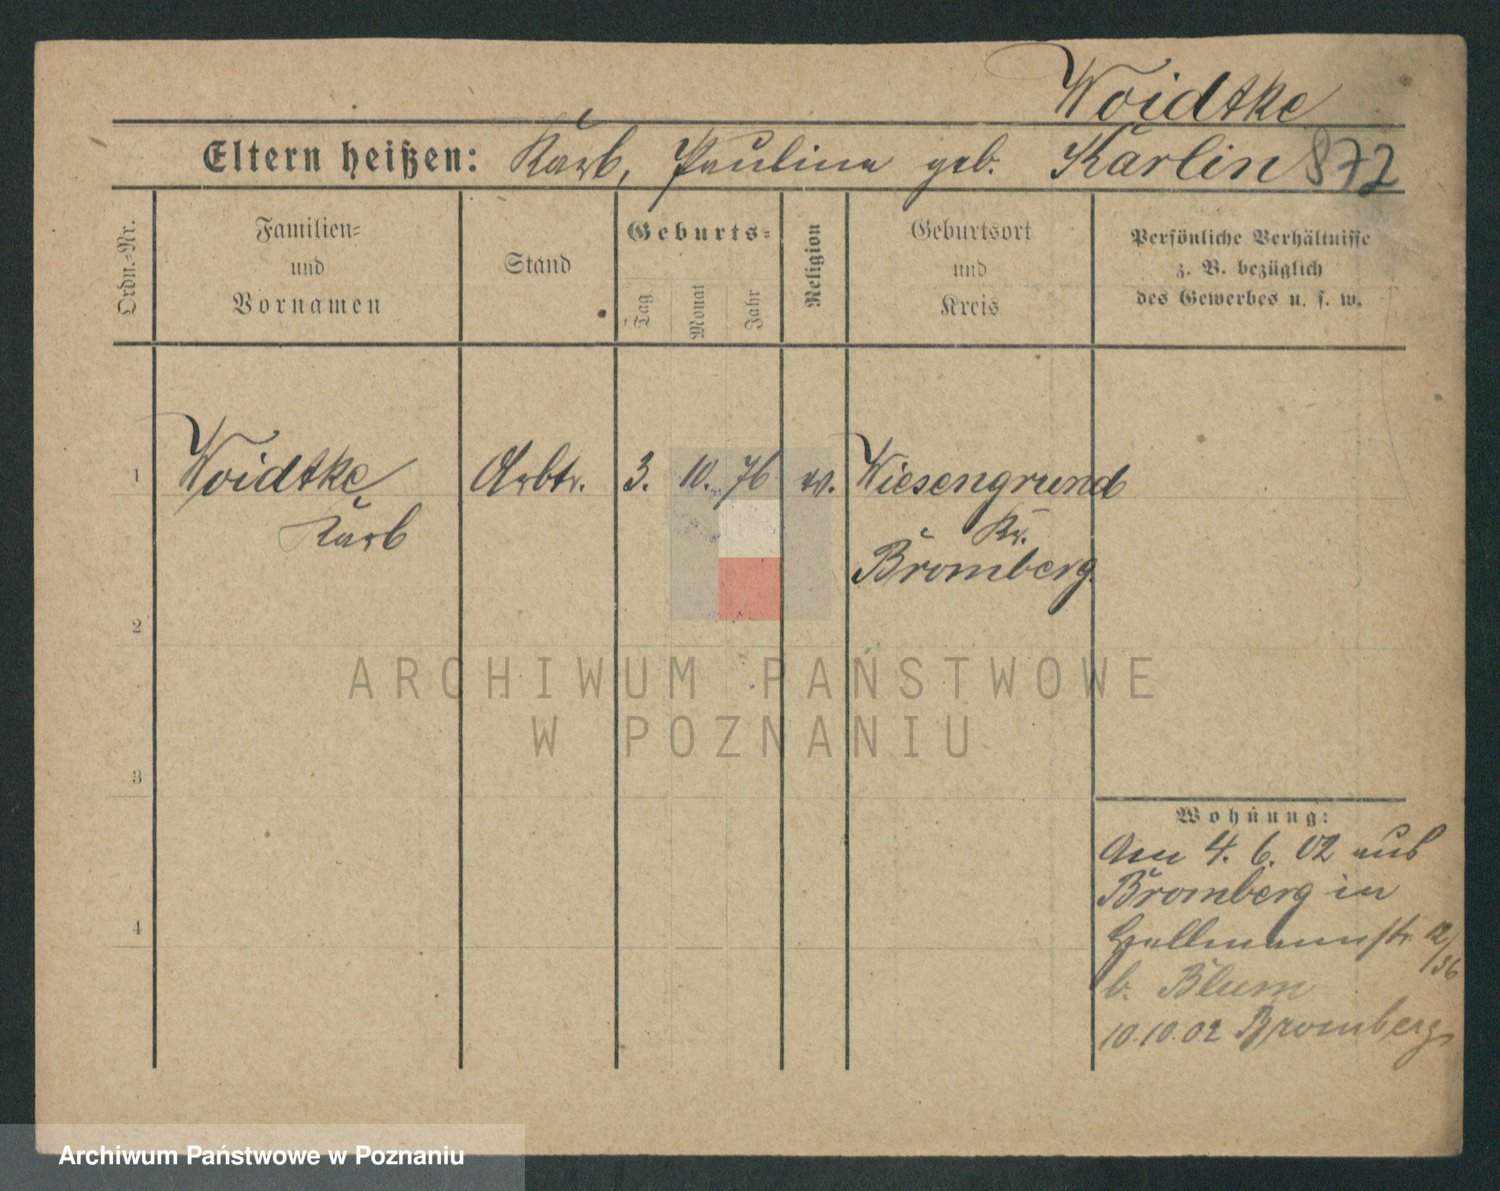 Woidtke
Eltern heißen: Karl, Pauline geb. Karlin 872
Ordn.-Nr.
Familien-
und
Vornamen
Stand
Geburts-
Tag
Monat
Jahr
Religion
Geburtsort
und
Kreis
Persönliche Verhältnisse
z. B. bezüglich
des Gewerbes u. s. w.
1 Woidtke Arbtr. 3. 10. 76 ev. Wiesengrund
Karl Kr.
Bromberg
2
ARCHIWUM PAŃSTWOWE
W POZNANIU
3
Wohnung:
Am 4. 6. 02 aus
Bromberg in
12/36
4
b. Blum
10.10.02 Bromberg
Archiwum Państwowe w Poznaniu